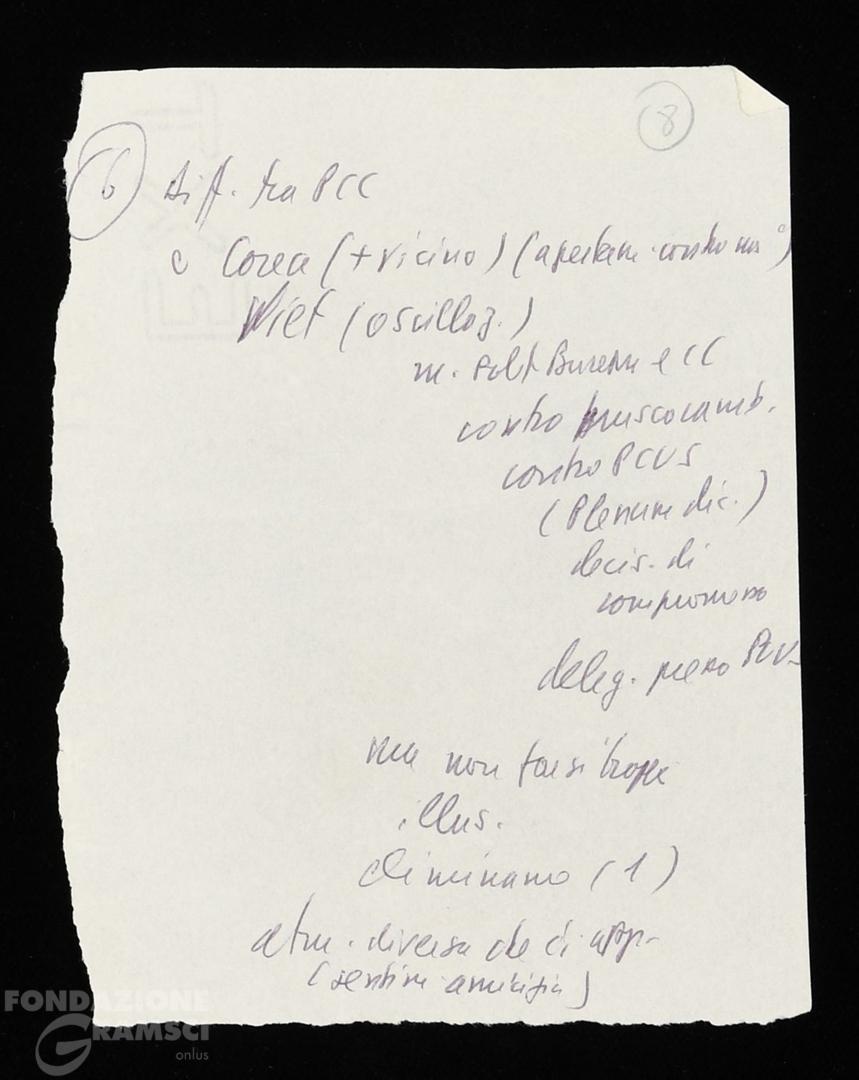 8
6 diff. tra PCC
e Corea (+ vicino) (apertam. contro
Viet (oscillaz.)
m. Polit Bureau e CC
contro
contro PCUS
(Plenum dic.)
decis. di
compromesso
deleg. presso
ma non farsi troppe
illus.
eliminano (1)
atm. diversa da
(sentim. amicizia)
FONDAZIONE
GRAMSCI
onlus